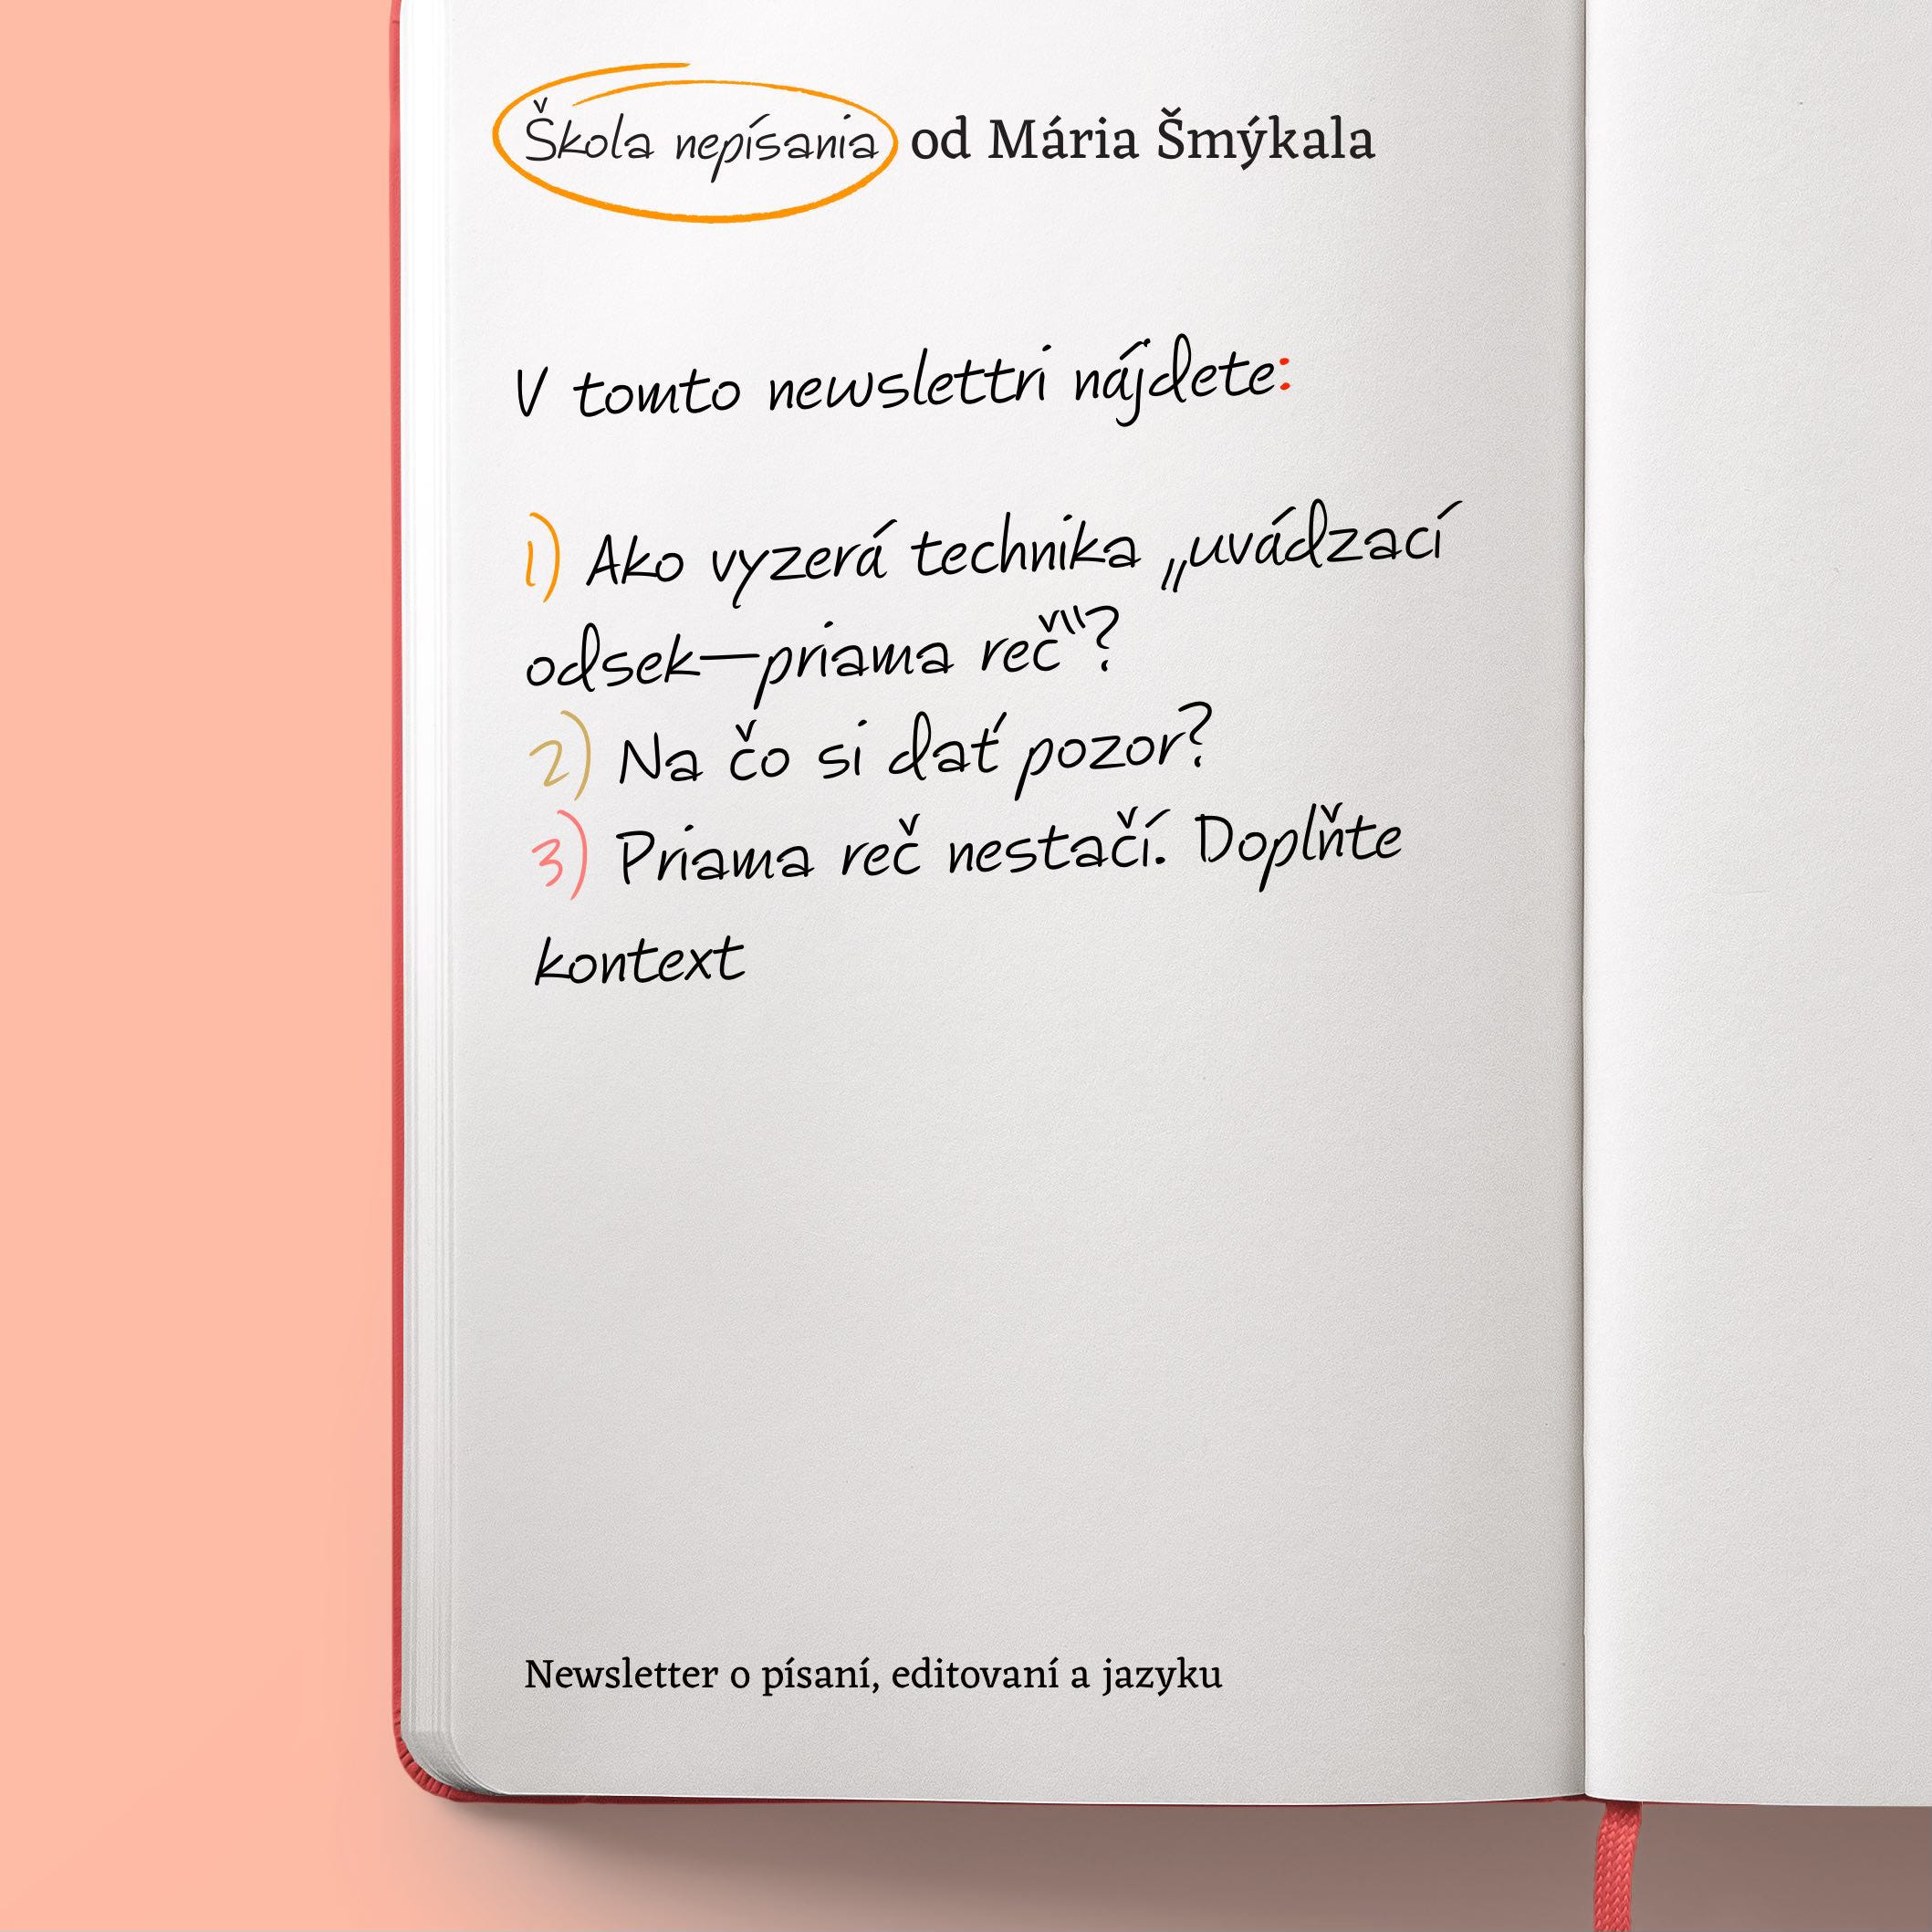 Škola nepísania od Mária Šmýkala
V tomto newslettri nájdete:
1) Ako vyzerá technika „uvádzací
odsek—priama reč“?
2) Na čo si dať pozor?
3) Priama reč nestačí. Doplňte
kontext
Newsletter o písaní, editovaní a jazyku